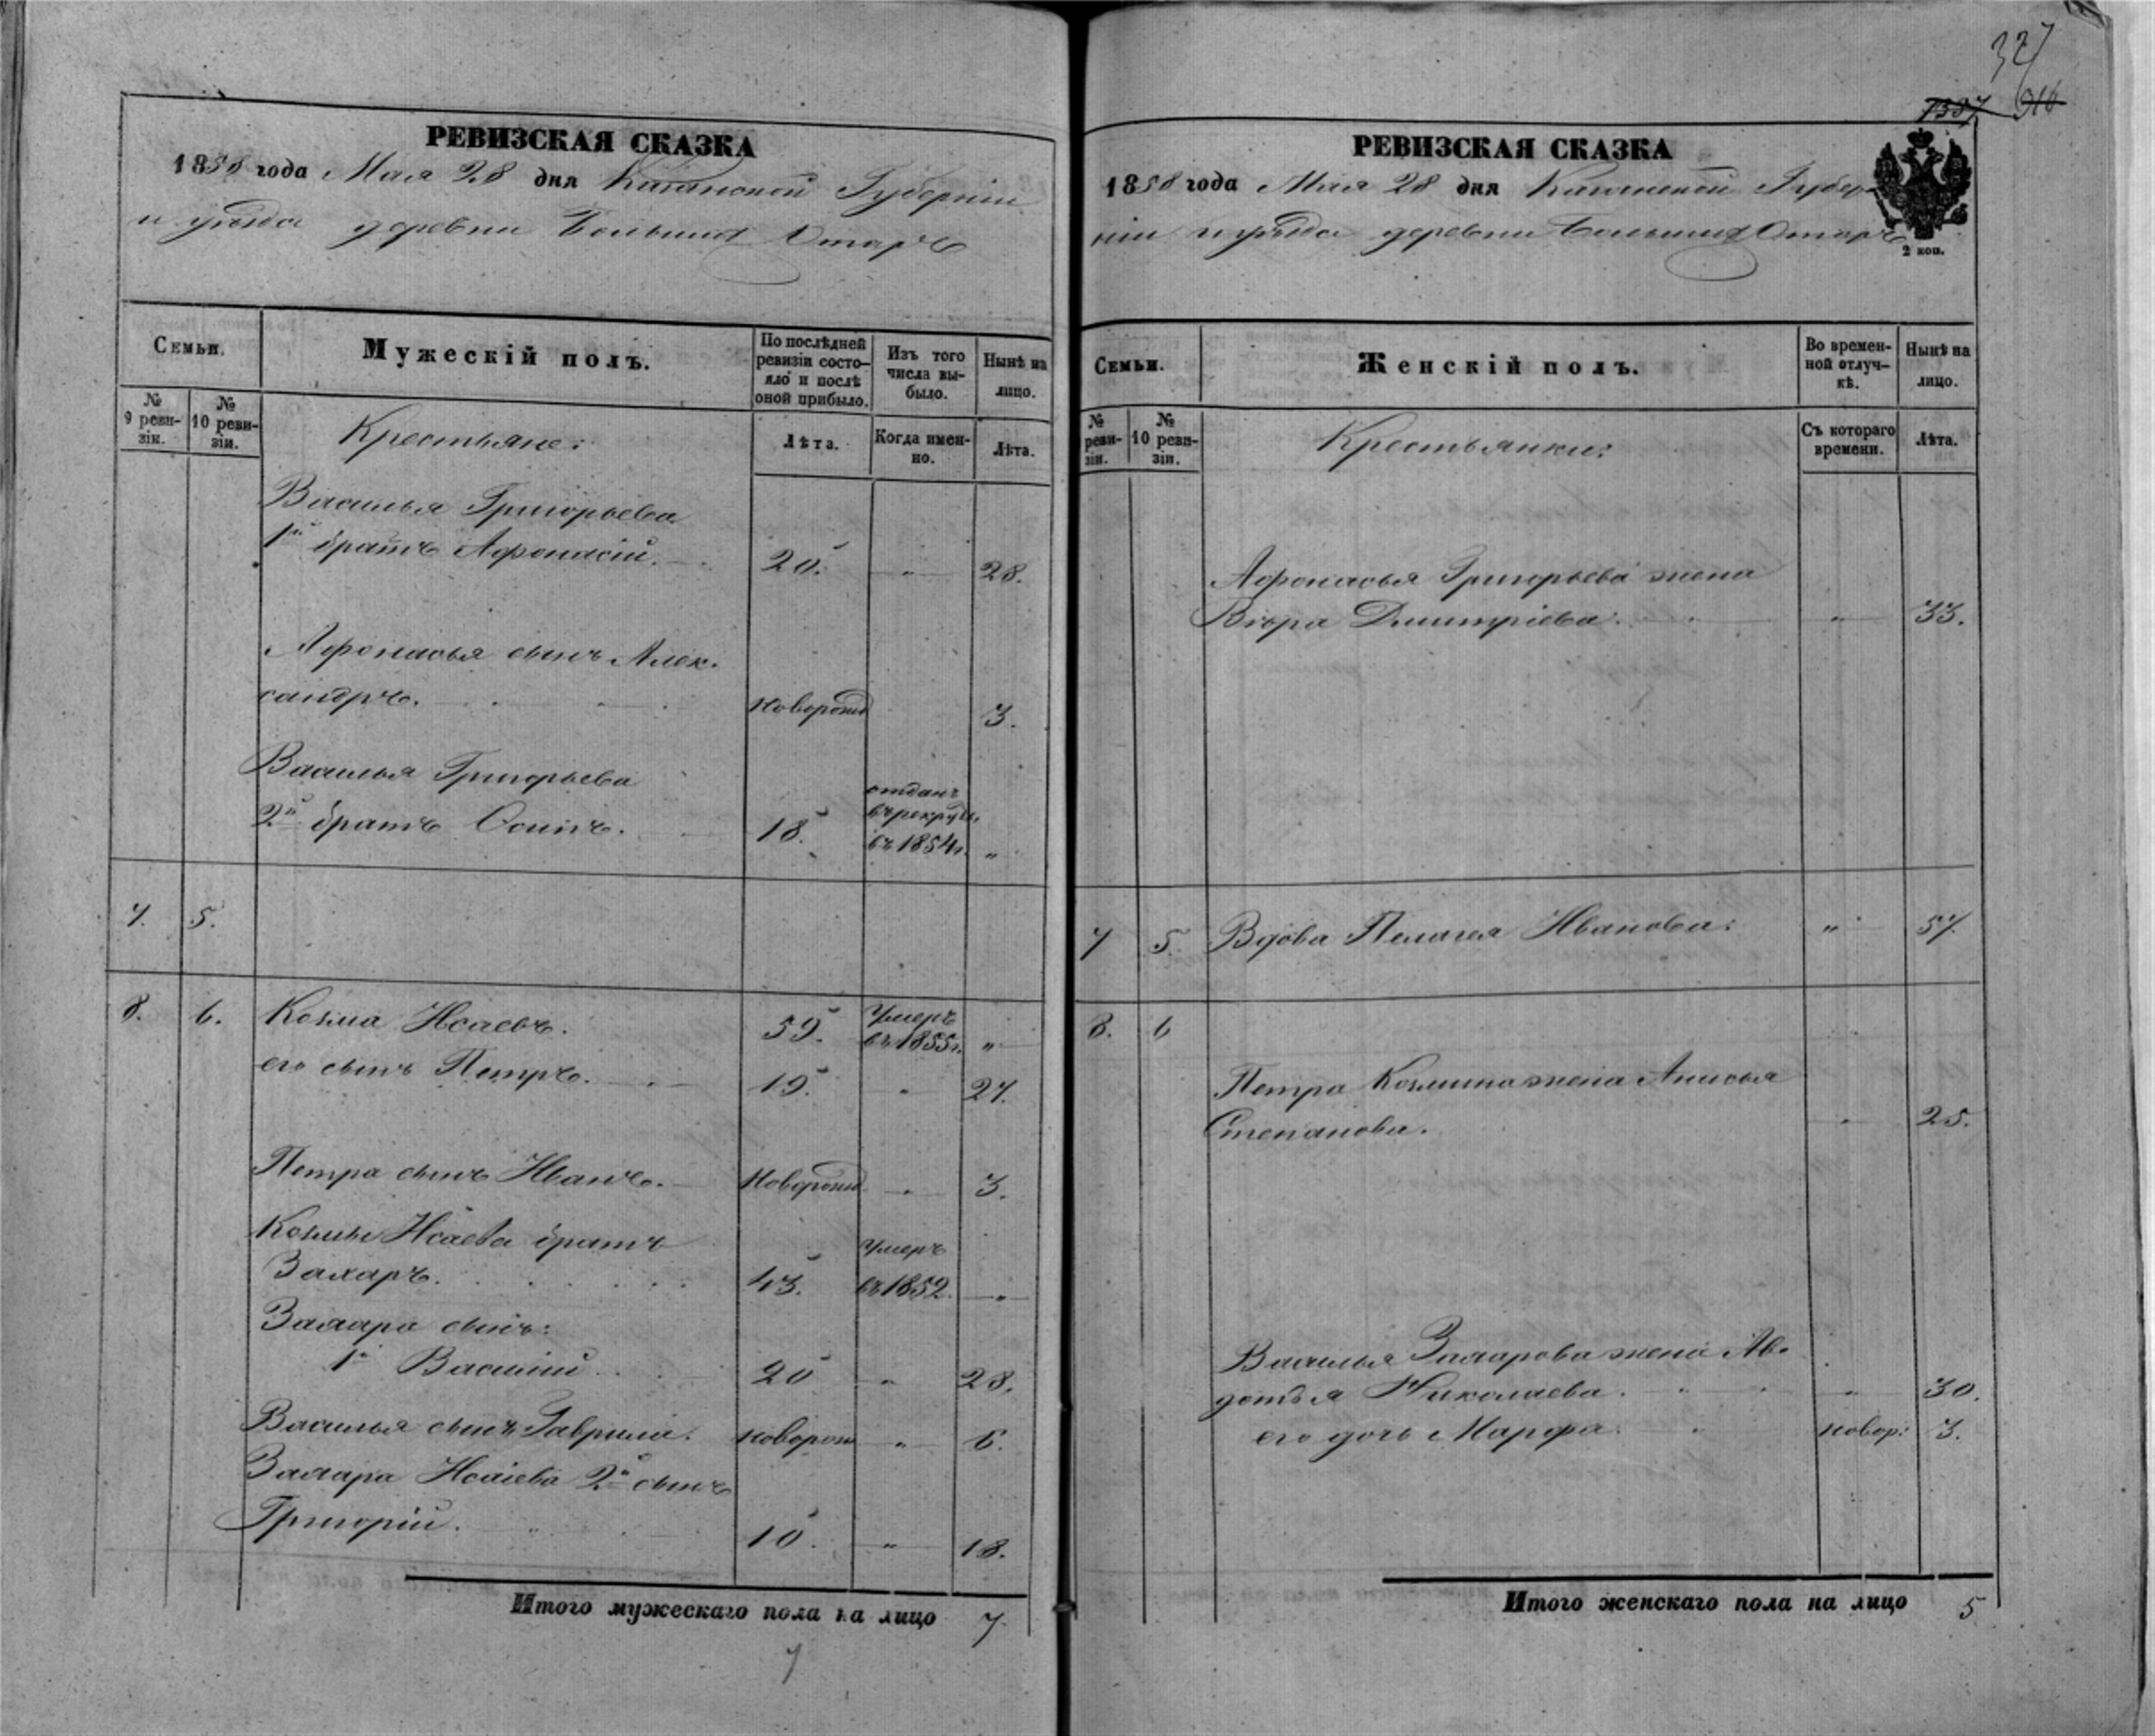 327
1587 916
РЕВИЗСКАЯ СКАЗКА
1858 года Мая 28 дня Казанской Губерніи
и уѣзда деревни Большихъ Отаръ
Семьи.
Мужескій полъ.
По послѣдней ревизіи состояло и послѣ оной прибыло.
Изъ того числа выбыло.
Нынѣ на лицо.
№ 9 ревизіи.
№ 10 ревизіи.
Крестьяне:
Лѣта.
Когда именно.
Лѣта.
Василья Григорьева
1й братъ Афонасій. 20. " 28.
Афонасья сынъ Алек-
сандръ. новорожд 3.
Василья Григорьева
2й братъ Осипъ. 18. отданъ въ рекруты въ 1854г. "
7. 5.
8. 6. Козма Исаевъ. 59. Умеръ въ 1855г. "
его сынъ Петръ. 19. " 27.
Петра сынъ Иванъ. Новорожд " 3.
Козмы Исаева братъ
Захаръ. 43. Умеръ въ 1852. "
Захара сынъ:
1й Василій 20 " 28.
Василья сынъ Гаврила. новорож " 6.
Захара Исаева 2й сынъ
Григорій. 10. " 18.
Итого мужескаго пола на лицо 7.
7
РЕВИЗСКАЯ СКАЗКА
1858 года Мая 28 дня Казанской Губер-
ніи и уѣзда деревни Большихъ Отаръ
2 коп.
Семьи.
Женскій полъ.
Во временной отлучкѣ.
Нынѣ на лицо.
№ ревизіи.
№ 10 ревизіи.
Крестьянки:
Съ котораго времени.
Лѣта.
Афонасья Григорьева жена
Вѣра Дмитріева. " 33.
7 5. Вдова Пелагея Иванова. " 57.
8. 6
Петра Козмина жена Анисья
Степанова. " 25.
Василья Захарова жена Ав-
дотья Николаева. " 30.
его дочь Марфа. новор: 3.
Итого женскаго пола на лицо 5